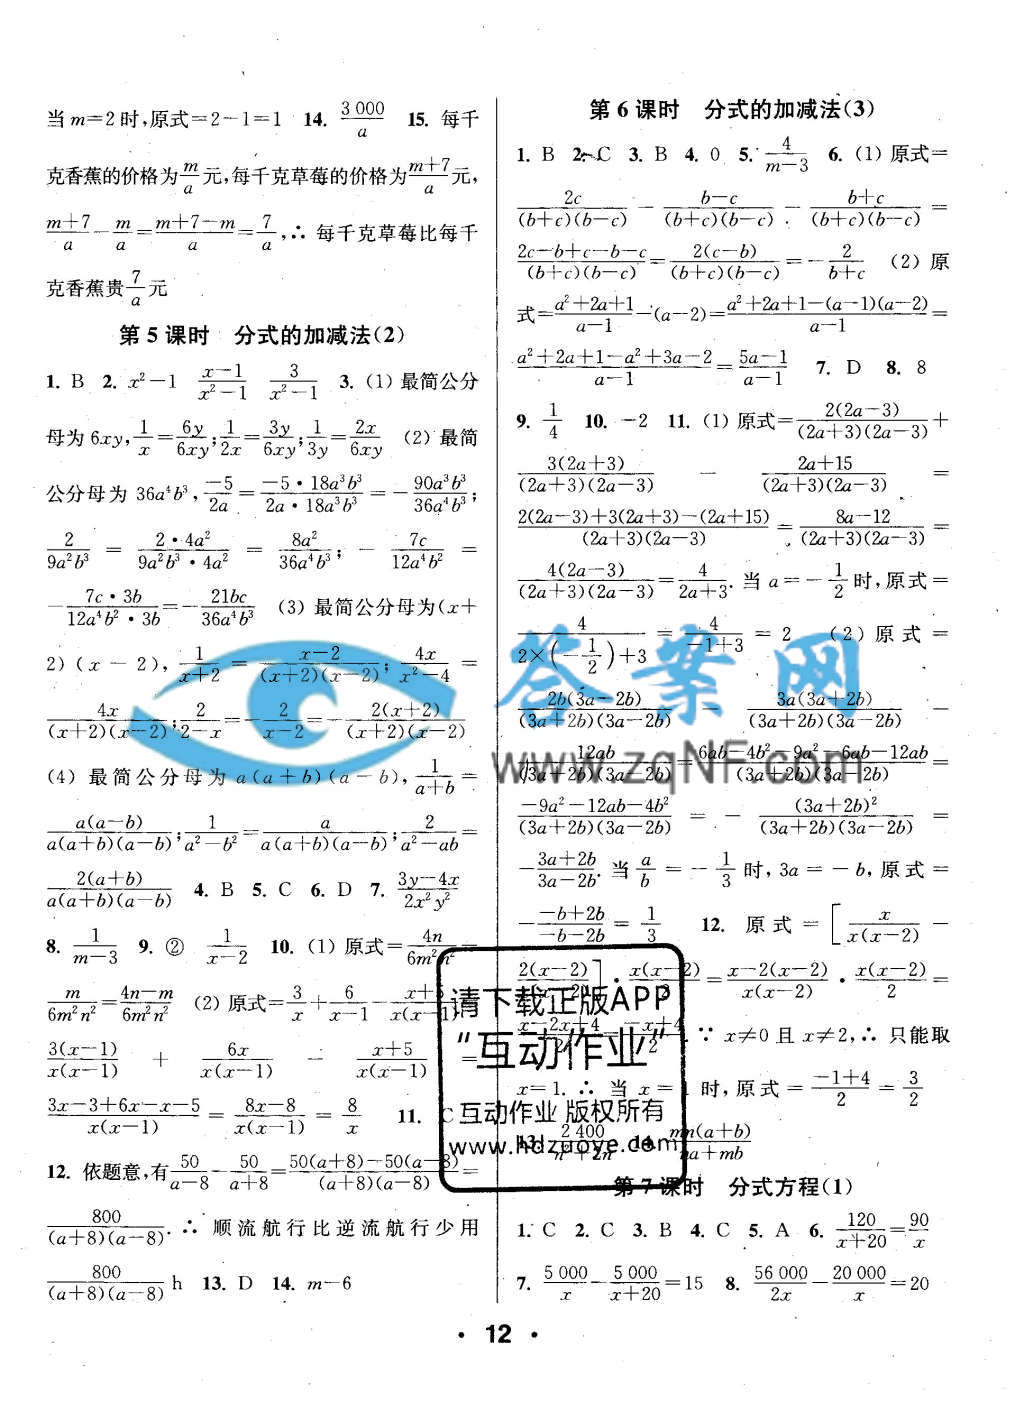 当 m=2 时,原式=2-1=1 14. 3 000/a 15. 每千
克香蕉的价格为 m/a 元,每千克草莓的价格为 (m+7)/a 元,
(m+7)/a - m/a = (m+7-m)/a = 7/a, ∴ 每千克草莓比每千
克香蕉贵 7/a 元
第 5 课时 分式的加减法(2)
1. B 2. x²-1 (x-1)/(x²-1) 3/(x²-1) 3. (1) 最简公分
母为 6xy, 1/x = 6y/6xy; 1/2x = 3y/6xy; 1/3y = 2x/6xy (2) 最简
公分母为 36a⁴b³, -5/2a = (-5·18a³b³)/(2a·18a³b³) = -90a³b³/36a⁴b³;
2/9a²b³ = (2·4a²)/(9a²b³·4a²) = 8a²/36a⁴b³; -7c/12a⁴b² =
-(7c·3b)/(12a⁴b²·3b) = -21bc/36a⁴b³ (3) 最简公分母为(x+
2)(x-2), 1/(x+2) = (x-2)/((x+2)(x-2)); 4x/(x²-4) =
4x/((x+2)(x-2)); 2/(2-x) = -2/(x-2) = -2(x+2)/((x+2)(x-2))
(4) 最简公分母为 a(a+b)(a-b), 1/(a+b) =
a(a-b)/(a(a+b)(a-b)); 1/(a²-b²) = a/(a(a+b)(a-b)); 2/(a²-ab) =
2(a+b)/(a(a+b)(a-b)) 4. B 5. C 6. D 7. (3y-4x)/(2x²y²)
8. 1/(m-3) 9. ② 1/(x-2) 10. (1) 原式= 4n/6m²n² -
m/6m²n² = (4n-m)/6m²n² (2) 原式= 3/x + 6/(x-1) - (x+5)/(x(x-1)) =
3(x-1)/(x(x-1)) + 6x/(x(x-1)) - (x+5)/(x(x-1)) =
(3x-3+6x-x-5)/(x(x-1)) = (8x-8)/(x(x-1)) = 8/x 11. C
12. 依题意,有 50/(a-8) - 50/(a+8) = (50(a+8)-50(a-8))/((a+8)(a-8)) =
800/((a+8)(a-8)). ∴ 顺流航行比逆流航行少用
800/((a+8)(a-8)) h 13. D 14. m-6
第 6 课时 分式的加减法(3)
1. B 2. C 3. B 4. 0 5. -4/(m-3) 6. (1) 原式=
2c/((b+c)(b-c)) - (b-c)/((b+c)(b-c)) - (b+c)/((b+c)(b-c)) =
(2c-b+c-b-c)/((b+c)(b-c)) = 2(c-b)/((b+c)(b-c)) = -2/(b+c) (2) 原
式= (a²+2a+1)/(a-1) -(a-2)= (a²+2a+1-(a-1)(a-2))/(a-1) =
(a²+2a+1-a²+3a-2)/(a-1) = (5a-1)/(a-1) 7. D 8. 8
9. 1/4 10. -2 11. (1) 原式= 2(2a-3)/((2a+3)(2a-3)) +
3(2a+3)/((2a+3)(2a-3)) - (2a+15)/((2a+3)(2a-3)) =
(2(2a-3)+3(2a+3)-(2a+15))/((2a+3)(2a-3)) = (8a-12)/((2a+3)(2a-3)) =
4(2a-3)/((2a+3)(2a-3)) = 4/(2a+3). 当 a=-1/2 时,原式=
4/(2×(-1/2)+3) = 4/(-1+3) = 2 (2) 原式=
2b(3a-2b)/((3a+2b)(3a-2b)) - 3a(3a+2b)/((3a+2b)(3a-2b)) -
12ab/((3a+2b)(3a-2b)) = (6ab-4b²-9a²-6ab-12ab)/((3a+2b)(3a-2b)) =
(-9a²-12ab-4b²)/((3a+2b)(3a-2b)) = -(3a+2b)²/((3a+2b)(3a-2b)) =
-(3a+2b)/(3a-2b). 当 a/b = -1/3 时, 3a=-b, 原式=
-(-b+2b)/(-b-2b) = 1/3 12. 原式= [x/(x(x-2)) -
2(x-2)/ ]· x(x-2)/ = (x-2(x-2))/(x(x-2)) · x(x-2)/2 =
(x-2x+4)/2 = (-x+4)/2. ∵ x≠0 且 x≠2, ∴ 只能取
x=1. ∴ 当 x=1 时,原式= (-1+4)/2 = 3/2
13. 2 400/(n²+2n) 14. mn(a+b)/(na+mb)
第 7 课时 分式方程(1)
1. C 2. C 3. B 4. C 5. A 6. 120/(x+20) = 90/x
7. 5 000/x - 5 000/(x+20) =15 8. 56 000/2x - 20 000/x =20
答案网
www.zqNF.com
请下载正版APP
“互动作业”
互动作业 版权所有
www.hdzuoye.com
· 12 ·